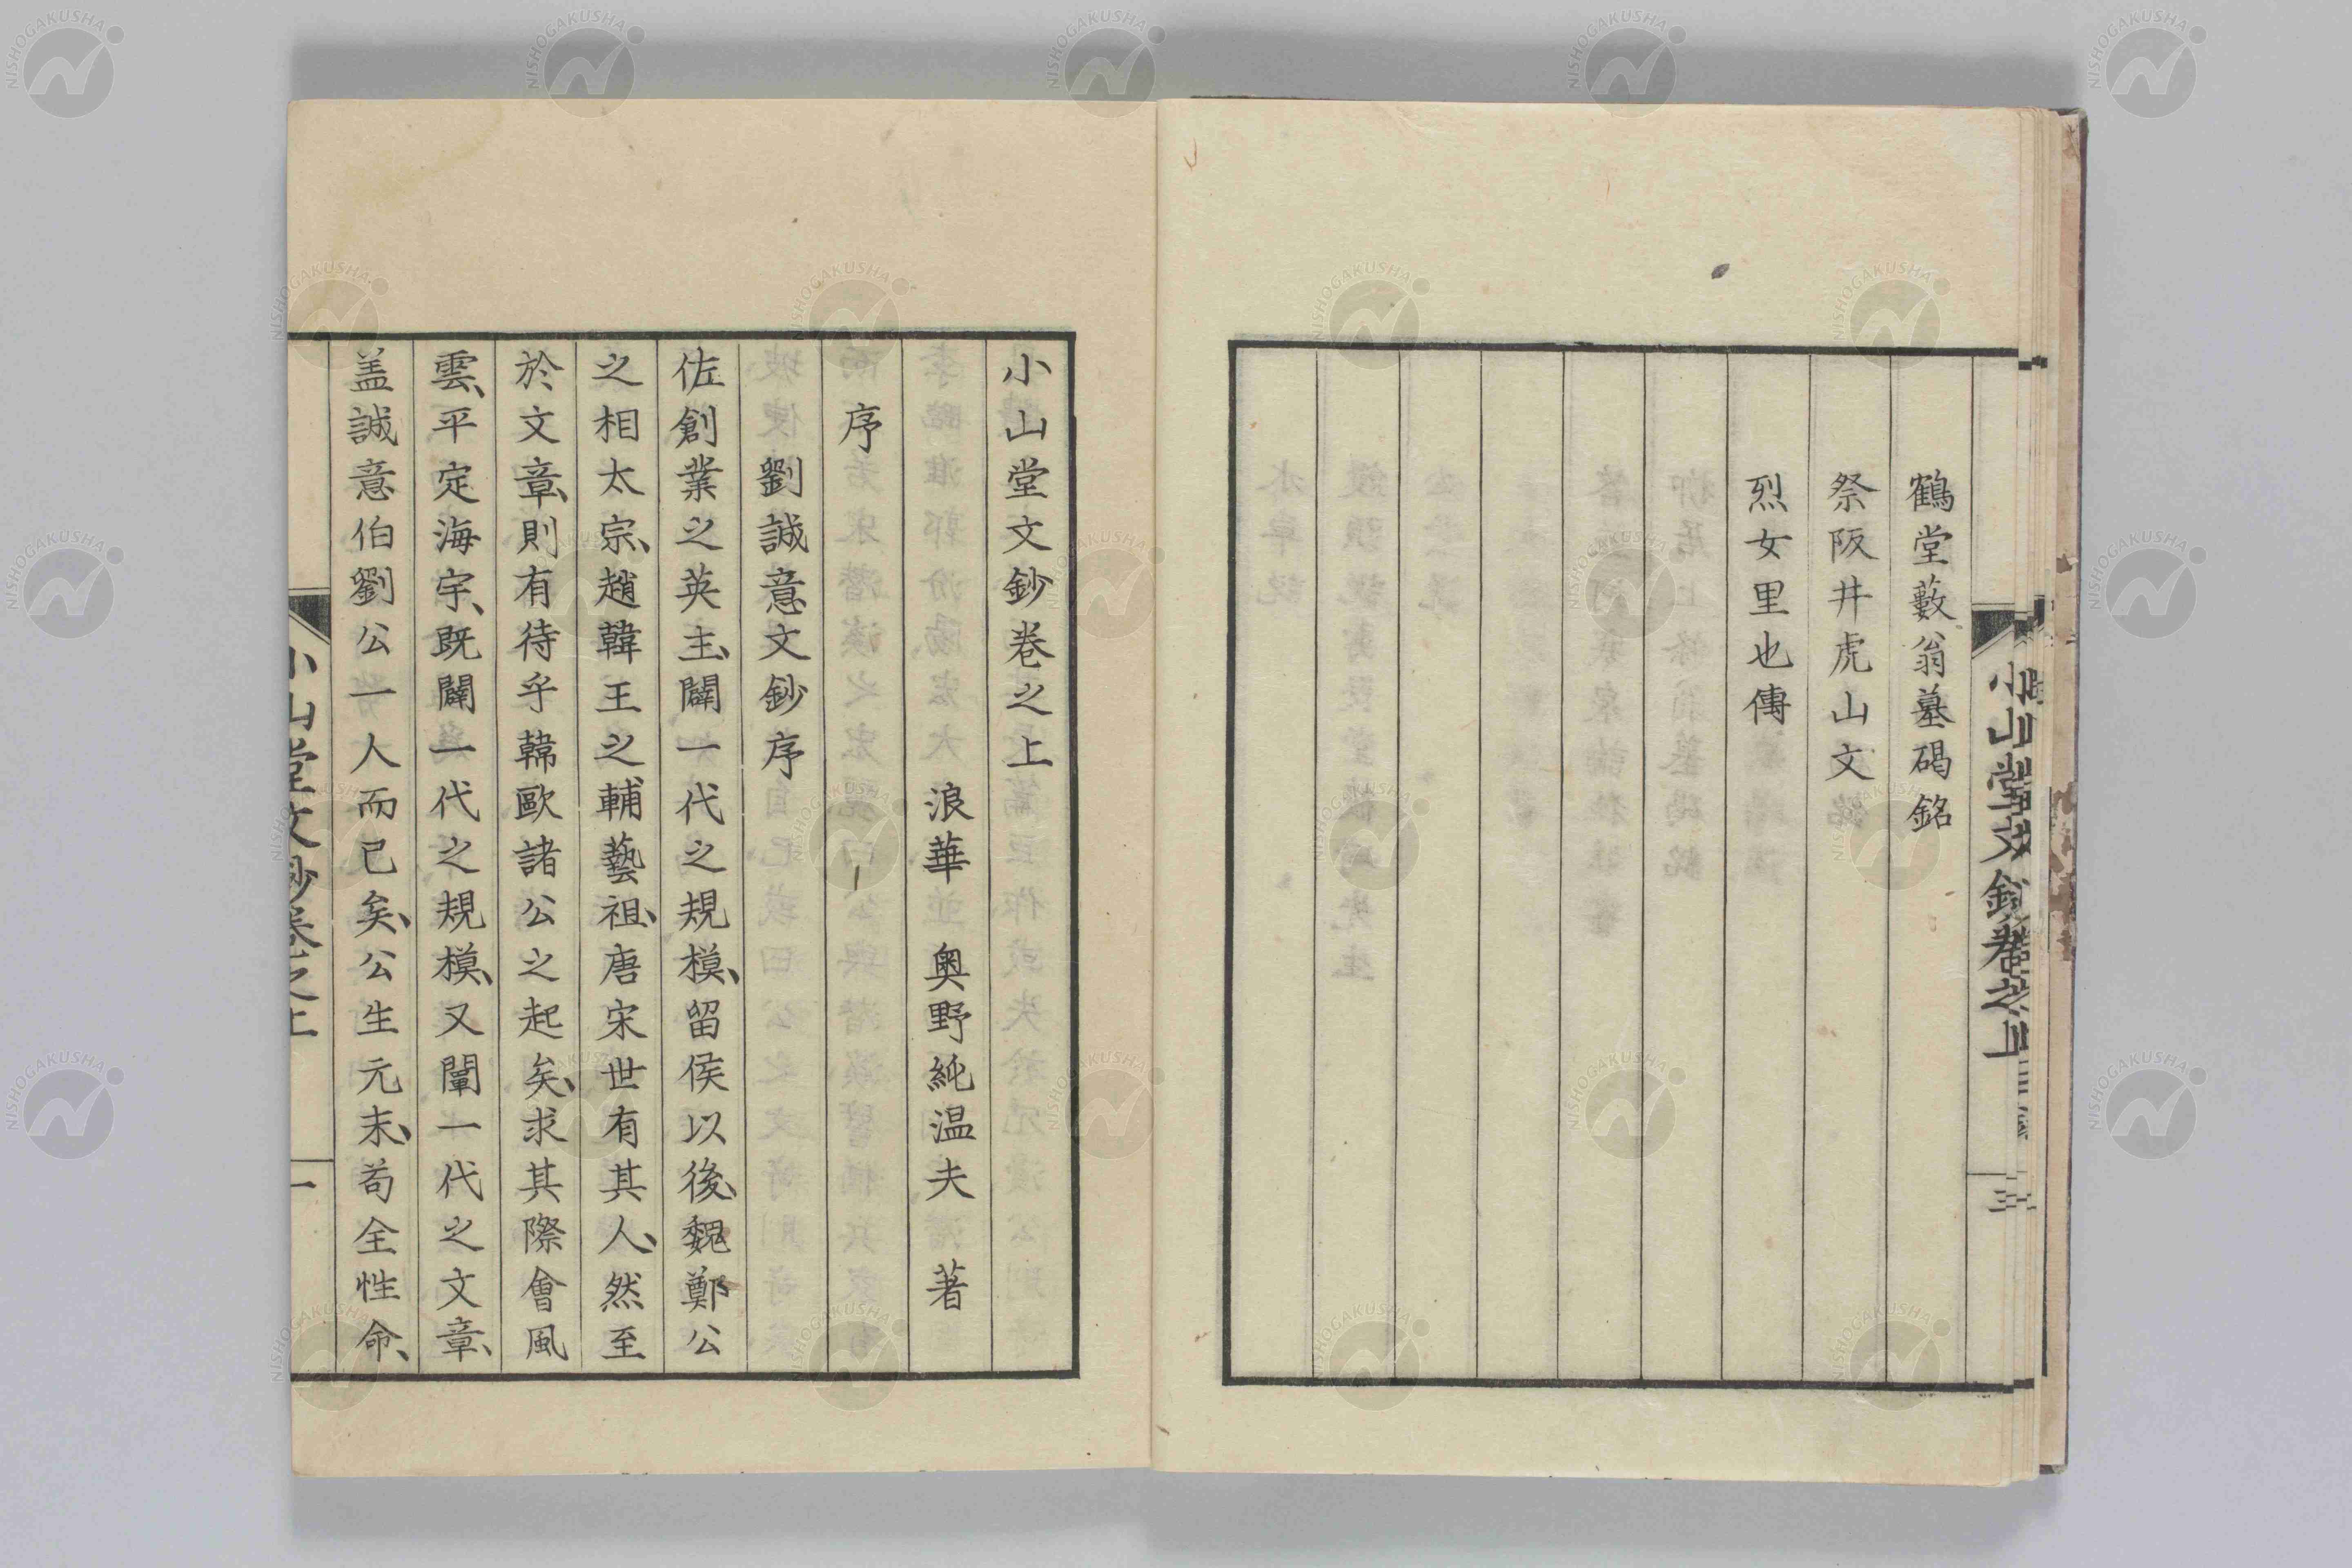 鶴堂藪翁墓碣銘
祭阪井虎山文
烈女里也傳
小山堂文鈔卷之上
小山堂文鈔卷之上
浪華 奥野純温夫 著
序
劉誠意文鈔序
佐創業之英主、闢一代之規模、留侯以後、魏鄭公
之相太宗、趙韓王之輔藝祖、唐宋世有其人、然至
於文章、則有待乎韓歐諸公之起矣、求其際會風
雲、平定海宇、既闢一代之規模、又闡一代之文章、
盖誠意伯劉公一人而已矣、公生元末、苟全性命、
小山堂文鈔卷之上
一
NISHOGAKUSHA